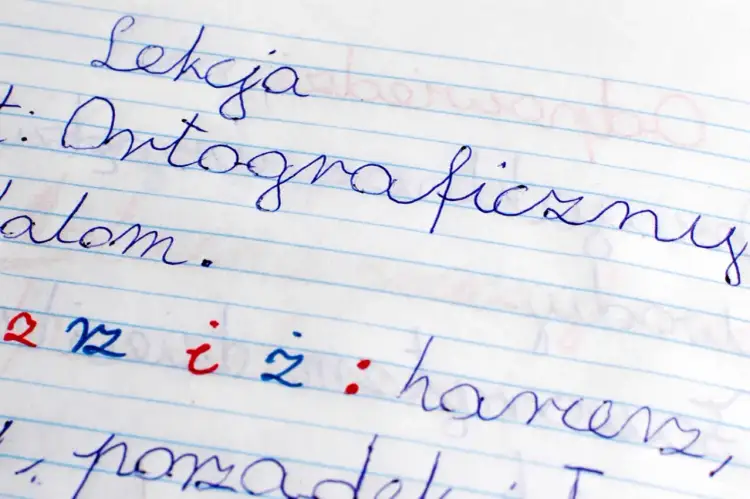 Lekcja
t: Ortograficzny
alom.
z rz i ż : harcerz,
porządek i